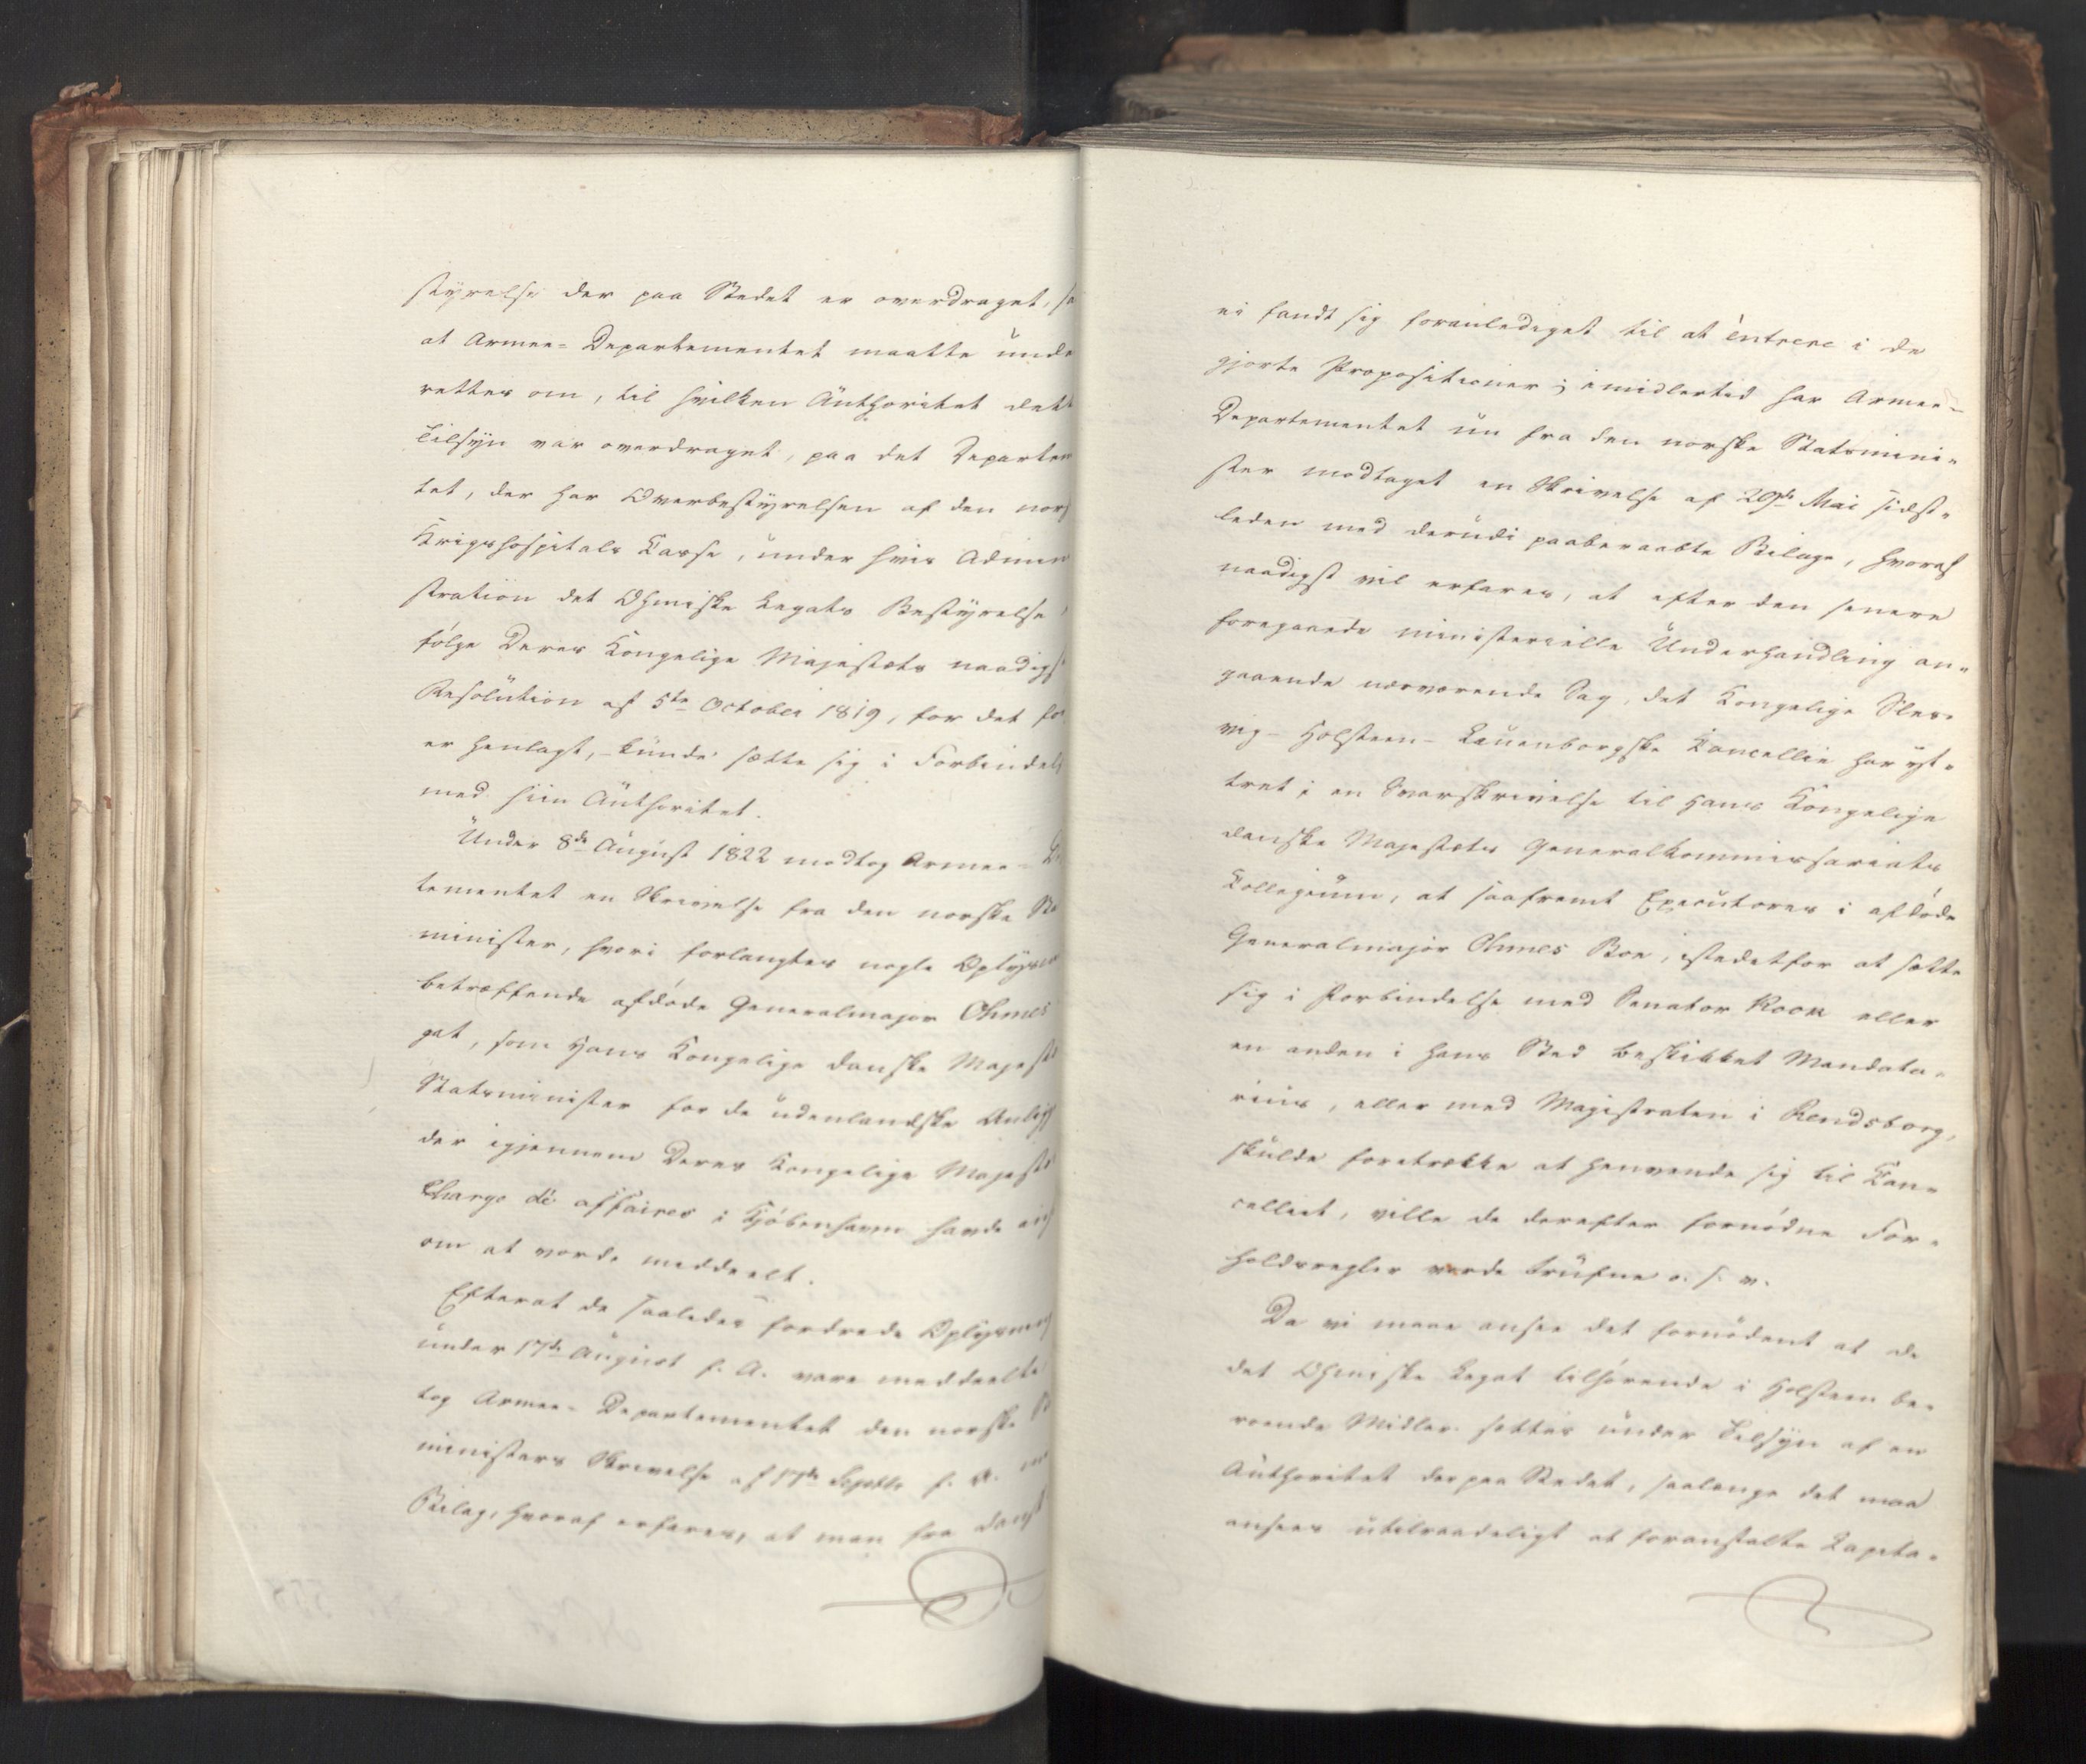 styrelse der paa Stedet er overdraget, sa
at Armee-Departementet maatte unde
rettes om, til hvilken Authoritet dett
Tilsyn var overdraget, paa det Departem
tet, der har Overbestyrelsen af den nors
Krigshospitals Casse, under hvis Admin
stration det Ohmiske Legats Bestyrelse i
følge Deres Kongelige Majestæts naadigst
Resolution af 5te October 1819, for det for
er henlagt, kunde sætte sig i Forbindels
med hiin Authoritet.
Under 8de August 1822 modtog Armee-De
tementet en Skrivelse fra den norske Sta
minister, hvori forlangtes nogle Oplysn
betræffende afdøde Generalmajor Ohmes
gat, som Hans Kongelige danske Majest
Statsminister for de udenlandske Anligg
der igjennem Deres Kongelige Majestæ
Charge d'affaires i Kjøbenhavn havde
om at vorde meddeelt.
Efterat de saaledes fordrede Oplysning
under 17de August f. A. vare meddeelte
tog Armee-Departementet den norske St
ministers Skrivelse af 17de Septbr f. A.
Bilag, hvoraf erfares, at man fra dansk
ei fandt sig foranlediget til at entrere i de
gjorte Propositioner; imidlertid har Armee-
Departementet nu fra den norske Statsmini-
ster modtaget en Skrivelse af 29de Mai sidst-
leden med derudi paaberaabte Bilage, hvoraf
naadigst vil erfares, at efter den senere
foregaaede ministerielle Underhandling an-
gaaende nærværende Sag, det Kongelige Sles-
vig-Holsteen-Lauenborgske Kancellie har yt-
tret i en Svarskrivelse til Hans Kongelige
danske Majestæts Generalkommissariats
Collegium, at saafremt Executores i afdøde
Generalmajor Ohmes Boe, istedetfor at sætte
sig i Forbindelse med Senator Roon eller
en anden i hans Sted beskikket Mandata-
rius, eller med Magistraten i Rendsborg,
skulde foretrække at henvende sig til Can-
celliet, ville de derefter fornødne For-
holdsregler vorde trufne o. s. v.
Da vi maae ansee det fornødent at de
det Ohmiske Legat tilhørende i Holsteen be-
roende Midler sættes under Tilsyn af en
Authoritet der paa Stedet, saalænge det maa
ansees utilraadeligt at foranstalte Kapita-